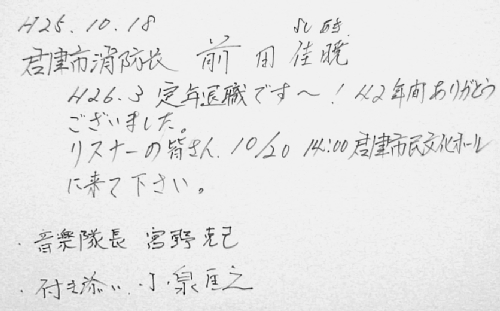 H25.10.18
君津市消防長 前田佳暁
H26.3 定年退職です〜! 42年間ありがとう
ございました。
リスナーの皆さん、10/20 14:00 君津市民文化ホール
に来て下さい。
・音楽隊長 宮野克己
・付き添い 小泉